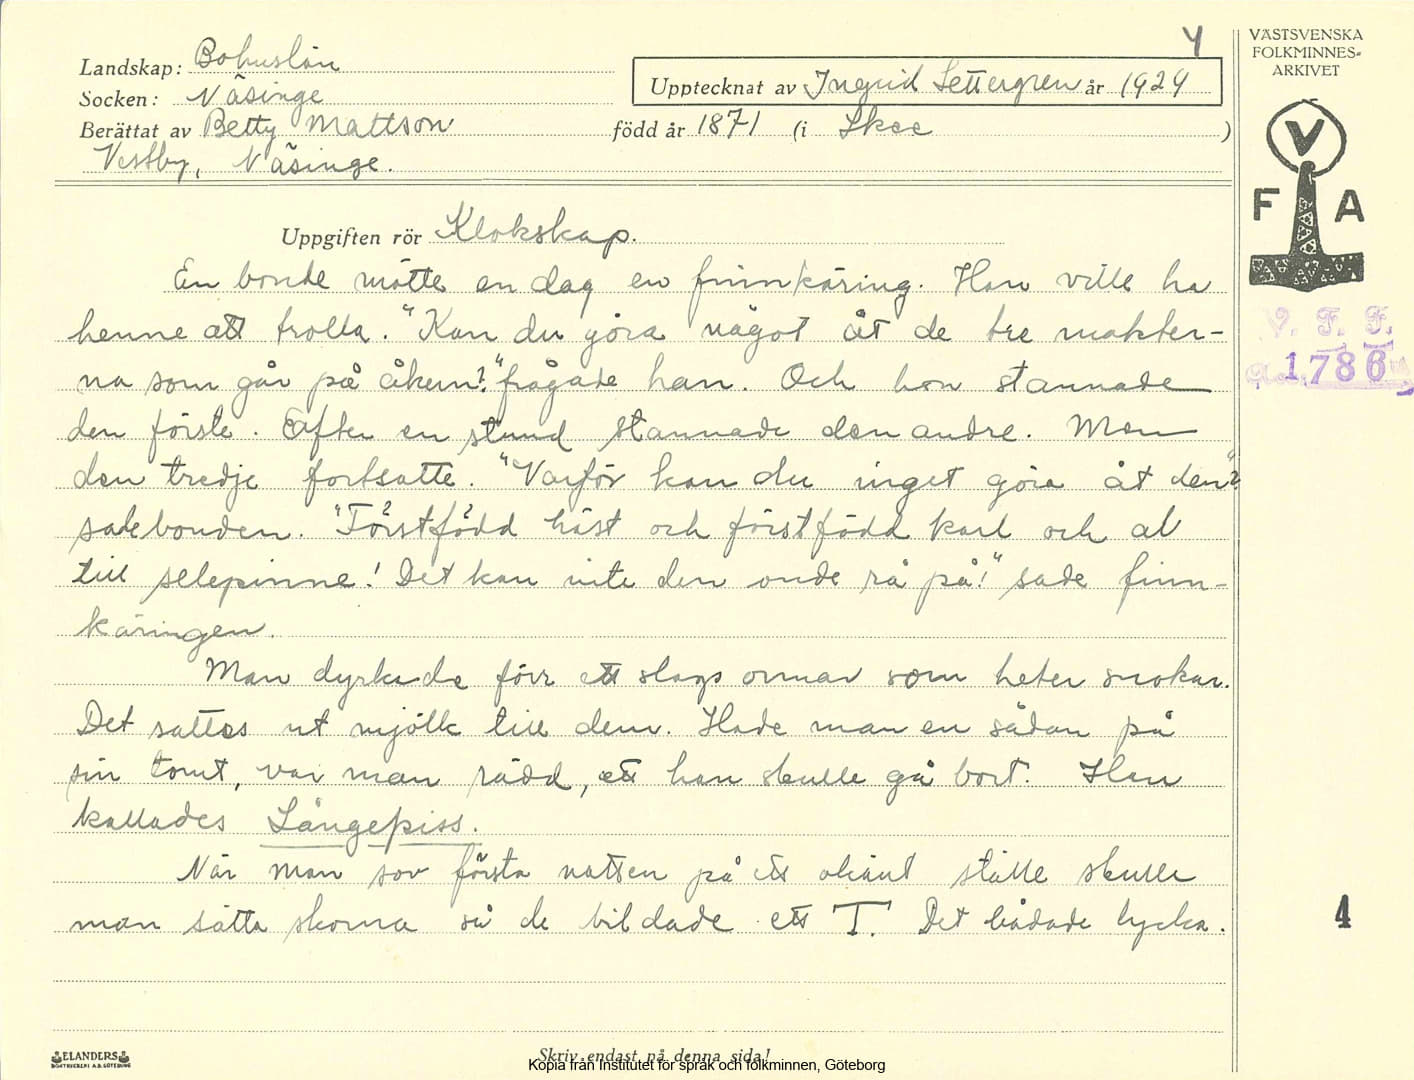 4
VÄSTSVENSKA
FOLKMINNES-
ARKIVET
Landskap: Bohuslän
Upptecknat av Ingrid Settergren år 1929
Socken: Näsinge
Berättat av Betty Mattson född år 1871 (i Skee )
Vestby, Näsinge.
V
F A
Uppgiften rör Klokskap.
En bonde mötte en dag en finnkäring. Han ville ha
henne att trolla. "Kan du göra något åt de tre makter-
na som går på åkern?" frågade han. Och hon stannade
den förste. Efter en stund stannade den andre. Men
den tredje fortsatte. "Varför kan du inget göra åt den"?
sade bonden. "Förstfödd häst och förstfödd karl och al
till selepinne! Det kan inte den onde rå på!" sade finn-
käringen.
Man dyrkade förr ett slags ormar som heter snokar.
Det sattes ut mjölk till dem. Hade man en sådan på
sin tomt, var man rädd, att han skulle gå bort. Han
kallades Långepiss.
När man sov första natten på ett okänt ställe skulle
man sätta skorna så de bildade ett T. Det bådade lycka.
V. F. F.
1786
4
ELANDERS
BOKTRYCKERI A.B. GÖTEBORG
Skriv endast på denna sida!
Kopia från Institutet för språk och folkminnen, Göteborg